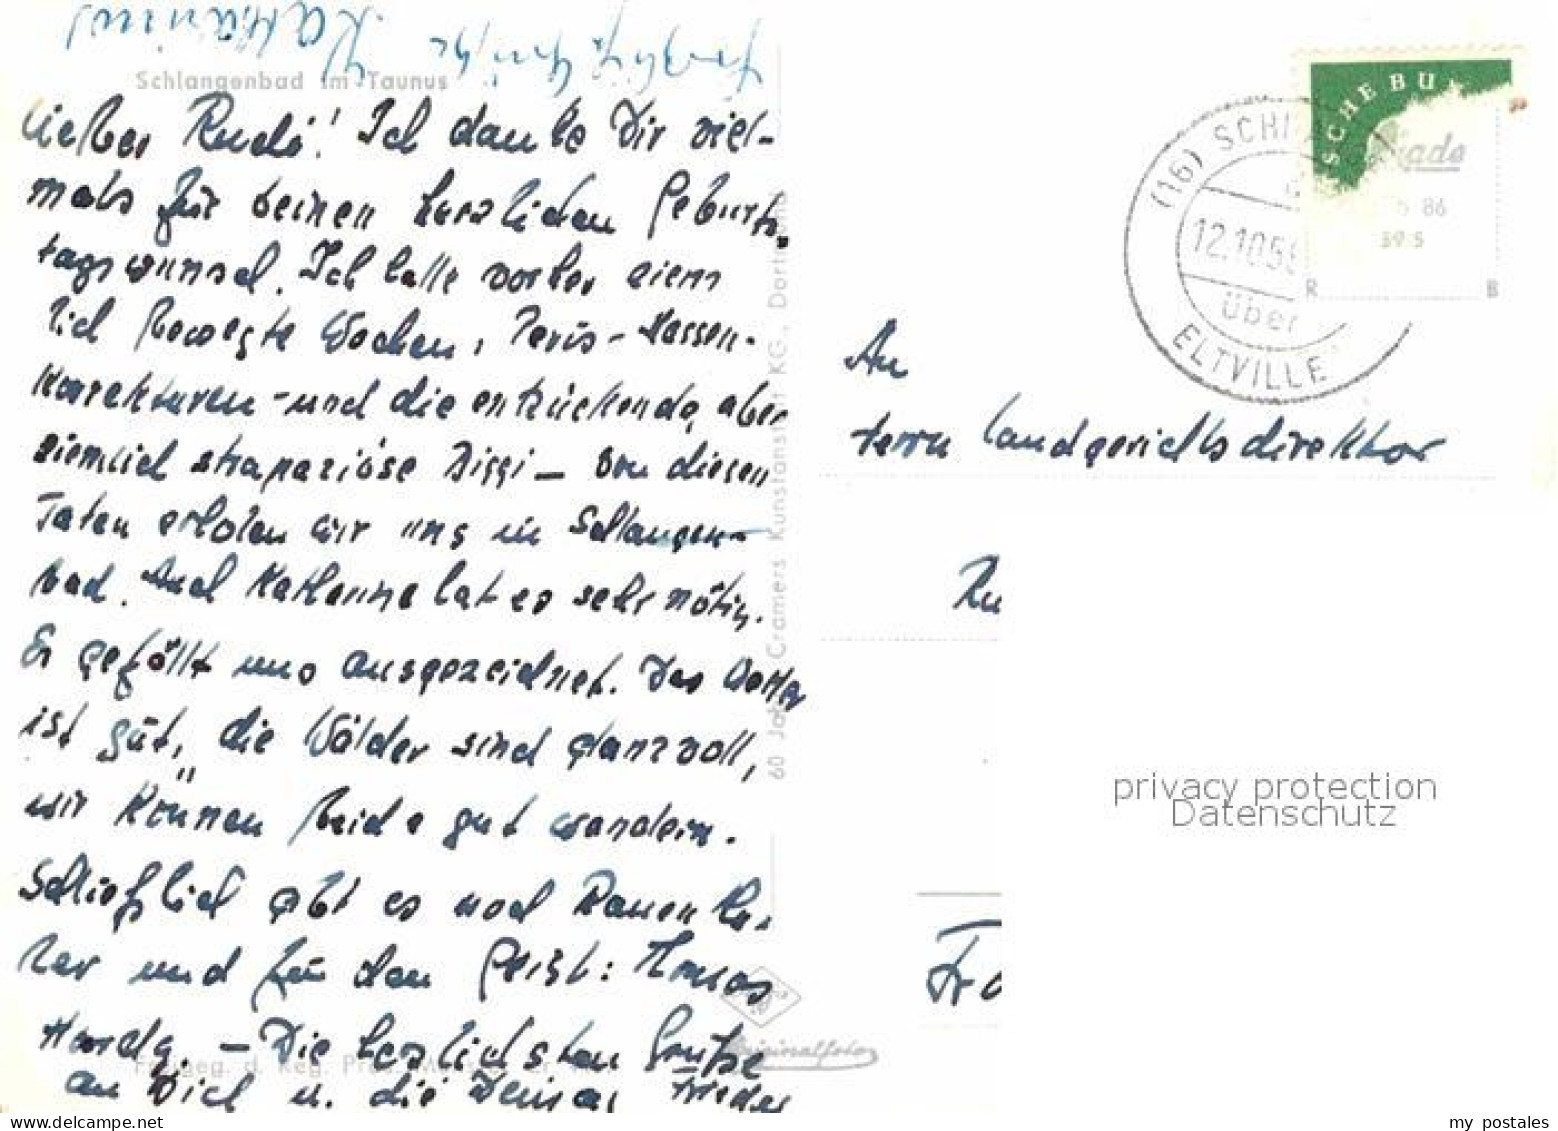 Schlangenbad im Taunus
Lieber Rudi! Ich danke Dir viel-
mals für deinen herzlichen Geburts-
tagswunsch. Ich hatte vorher ziem
lich bewegte Wochen, Paris-Massen-
Korrekturen - und die entzückende, aber
ziemlich strapaziöse Biggi - von diesen
Taten erholen wir uns in Schlangen-
bad. Auch Katharina hat es sehr nötig.
Es gefällt uns ausgezeichnet. Das Wetter
ist gut, die Wälder sind glanzvoll,
wir können beide gut wandern.
Schließlich gibt es noch
und für den Geist: Thomas
Hardy. - Die herzlichsten Grüße
an Dich u. die Deinen, Frieder
Herzliche Grüße Katharina
60 Jahre Cramers Kunstanstalt KG., Dortmund
Originalfoto
Freigeg. d. Reg. Präs.
(16) SCHL
12.10.56
über
ELTVILLE
SCHEBU
86
R B
An
Herrn Landgerichtsdirektor
Ru
Fra
privacy protection
Datenschutz
my postales